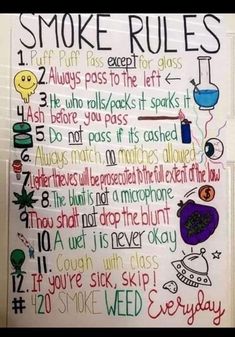 SMOKE RULES
1. Puff Puff Pass except for glass
2. Always pass to the left ←
3. He who rolls/packs it sparks it
4. Ash before you pass
5. Do not pass if it's cashed
6. Always match, no mooches allowed
7. Lighter thieves will be prosecuted to the full extent of the law
8. The blunt is not a microphone
9. Thou shalt not drop the blunt
10. A wet j is never okay
11. Cough with class
12. If you're sick, skip!
# 420 SMOKE WEED Everyday